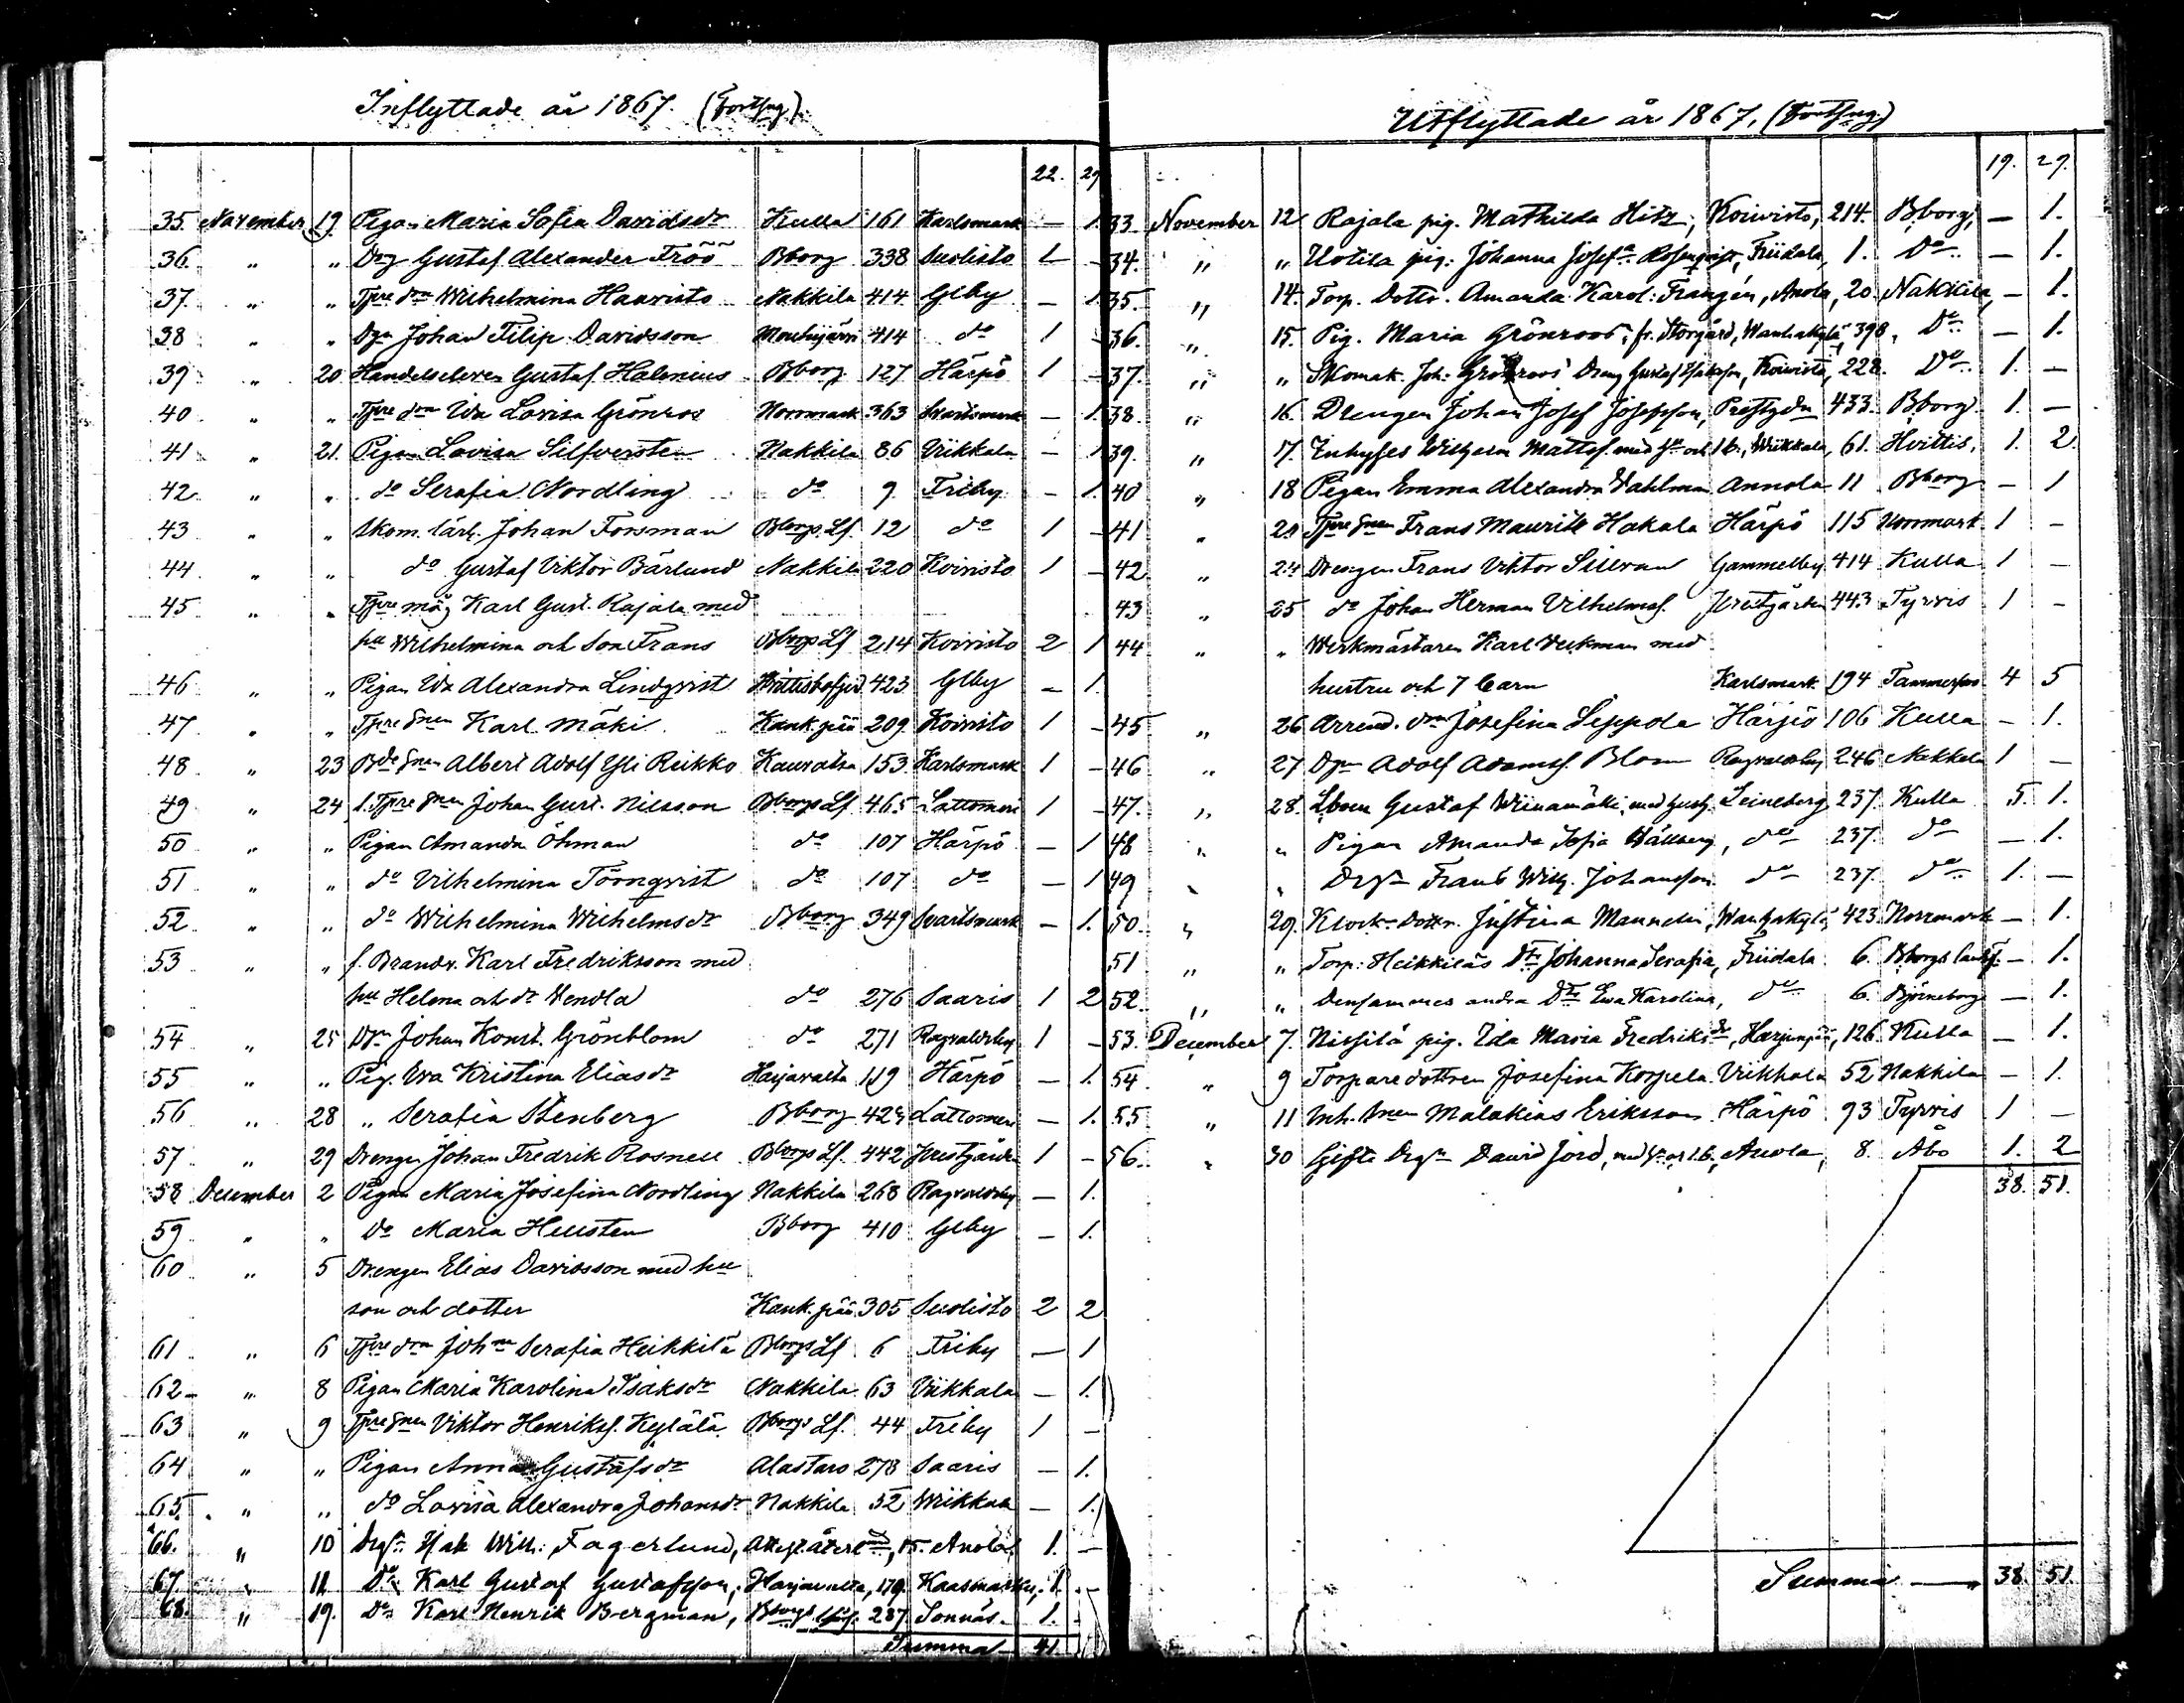 Inflyttade år 1867. (Fortsng).
22. 29
35. November 19. Pigan Maria Sofia Davidsdr Kulla 161 Karlsmark — 1.
36. „ „ Drg Gustaf Alexander Tröö Bborg 338 Suolisto 1 —
37. „ „ Tpre drn Wilhelmina Haavisto Nakkila 414 Glby — 1.
38 „ „ Dgn Johan Filip Davidsson Mouhijärvi 414 do 1 —
39 „ 20 Handelseleven Gustaf Halenius Bborg 127 Härpö 1 —
40 „ „ Tpre drn Ida Lovisa Grönros Norrmark 363 Svartsmark — 1.
41 „ 21. Pigan Lovisa Silfversten Nakkila 86 Viikkala — 1
42. „ „ do Serafia Nordling do 9 Friby — 1.
43 „ „ Skom. lärl. Johan Forsman Bborgs Lf. 12 do 1 —
44 „ „ do Gustaf Viktor Bärlund Nakkila 220 Koivisto 1 —
45 „ „ Tpre måg Karl Gust. Rajala med
hu Wilhelmina och Son Frans Bborgs Lf 214 Koivisto 2 1
46 „ „ Pigan Ida Alexandra Lindqvist 423. Glby — 1.
47 „ „ Tpre snen Karl Mäki Kankpää 209. Koivisto 1 —
48 „ 23 Bde snen Albert Adolf Yli Reikko Kauvatsa 153. Karlsmark 1 —
49 „ 24 f. Tpre snen Johan Gust. Nilsson Bborgs Lf. 465 Lattomeri 1 —
50 „ „ Pigan Amanda Öhman do 107 Härpö — 1
51 „ „ do Vilhelmina Törnqvist do 107 do — 1
52 „ „ do Wilhelmina Wilhelmsdr Bborg 349 Svartsmark — 1.
53 „ „ f. Brandv. Karl Fredriksson med
hu Helena och dr Vendla do 276 Saaris 1 2
54 „ 25 Dgn Johan Konst. Grönblom do 271 Ragvaldsby 1 —
55 „ „ Pig. Eva Kristina Eliasdr Harjavalta 119 Härpö — 1.
56 „ 28 „ Serafia Stenberg Bborg 423 Lattomeri — 1.
57 „ 29 Drengen Johan Fredrik Rosnell Bborgs Lf. 442 1 —
58 December 2 Pigan Maria Josefina Nordling Nakkila 268 Ragvaldsby — 1.
59 „ „ Do Maria Hellsten Bborg 410 Glby — 1.
60 „ 5 Drengen Elias Davidsson med hu
son och dotter Kank.pää 305 Suolisto 2 2
61 „ 6 Tpre drn Johna Serafia Heikkilä Bborgs Lf 6 Friby — 1
62 „ 8 Pigan Maria Karolina Isaksdr Nakkila 63 Viikkala — 1.
63 „ 9 Tpre snen Viktor Henrikss. Kylälä Bborgs Lf. 44 Friby 1 —
64 „ „ Pigan Anna Gustafsdr Alastaro 278 Saaris — 1.
65. „ „ do Lovisa Alexandra Johansdr Nakkila 52 Wiikkala — 1.
66. „ 10 Drgn Isak Wilh: Fagerlund, 15. Anola, 1. —
67. „ 11 Do Karl Gustaf Gustafsson, Harjavalta, 179. 1. —
68. „ 19. Do Karl Henrik Bergman, Bborgs 287 Sonnäs. 1.
Summa 41.
Utflyttade år 1867, (Fortsng.)
19. 29.
33. November 12 Rajala pig. Mathilda Hitz, Koivisto, 214. Bborg, — 1.
34. „ „ Uotila pig. Johanna Josefa Rosenqvist, Friidala, 1. Do — 1.
35. „ 14. Torp. Dottr. Amanda Karol: Frangén, Anola, 20. Nakkila, — 1.
36. „ 15. Pig. Maria Grönroos, fr. Storgård, Wanhakylä, 398. Do — 1.
37. „ „ Skomak. Joh: Grönroos Dreng Gustaf Isaksson, Koivisto, 228. Do 1. —
38. „ 16. Drengen Johan Josef Josefsson, 433. Bborg. 1. —
39. „ 17. Inhyses Wilhelm Mattss. med hu och 1 b., Wiikkala, 61. Hvittis, 1. 2.
40 „ 18 Pigan Emma Alexandra Dahlman Annola 11 Bborg — 1
41 „ 20 Tpre snen Frans Maurits Hakala Härpö 115 Norrmark 1 —
42. „ 24 Drengen Frans Viktor Sillvan Gammelby 414 Kulla 1 —
43 „ 25 do Johan Herman Vilhelmss. 443 Tyrvis 1 —
44 „ „ Werkmästaren Karl Veckman med
hustru och 7 barn Karlsmark 194 Tammerfors 4 5
45 „ 26 Arrend. drn Josefina Seppola Härpö 106 Kulla — 1.
46 „ 27 Dgn Adolf Adamss. Blom Ragvaldsby 246 Nakkila 1 —
47. „ 28. Gustaf Wiinamäki, med Leineberg 237. Kulla 5. 1.
48 „ „ Pigan Amanda Sofia Wallberg, do 237. do — 1.
49 „ „ Drgn Frans Wilh. Johansson do 237. do 1. —
50. „ 29. Klock. Dottr. Justina Mannelin, Wanhakylä, 423. Norrmark — 1.
51 „ „ Torp: Heikkiläs Dtr Johanna Serafia, Friidala. 6. Bborgs landsf. — 1.
52. „ „ Densammes andra Dtr Eva Karolina, do 6. Björneborg — 1.
53. December 7. Nissilä pig. Ida Maria Fredriksdr, Harjunpää, 126. Kulla — 1.
54. „ 9 Torpare dottren Josefina Korpela Viikkala 52 Nakkila — 1.
55 „ 11 Inh. snen Malakias Eriksson Härpö 93 Tyrvis 1 —
56. „ 30 Gifte Drgn David Jord, med hu o. 1 b., Anola, 8. Åbo 1. 2
38. 51.
Summa — 38. 51.